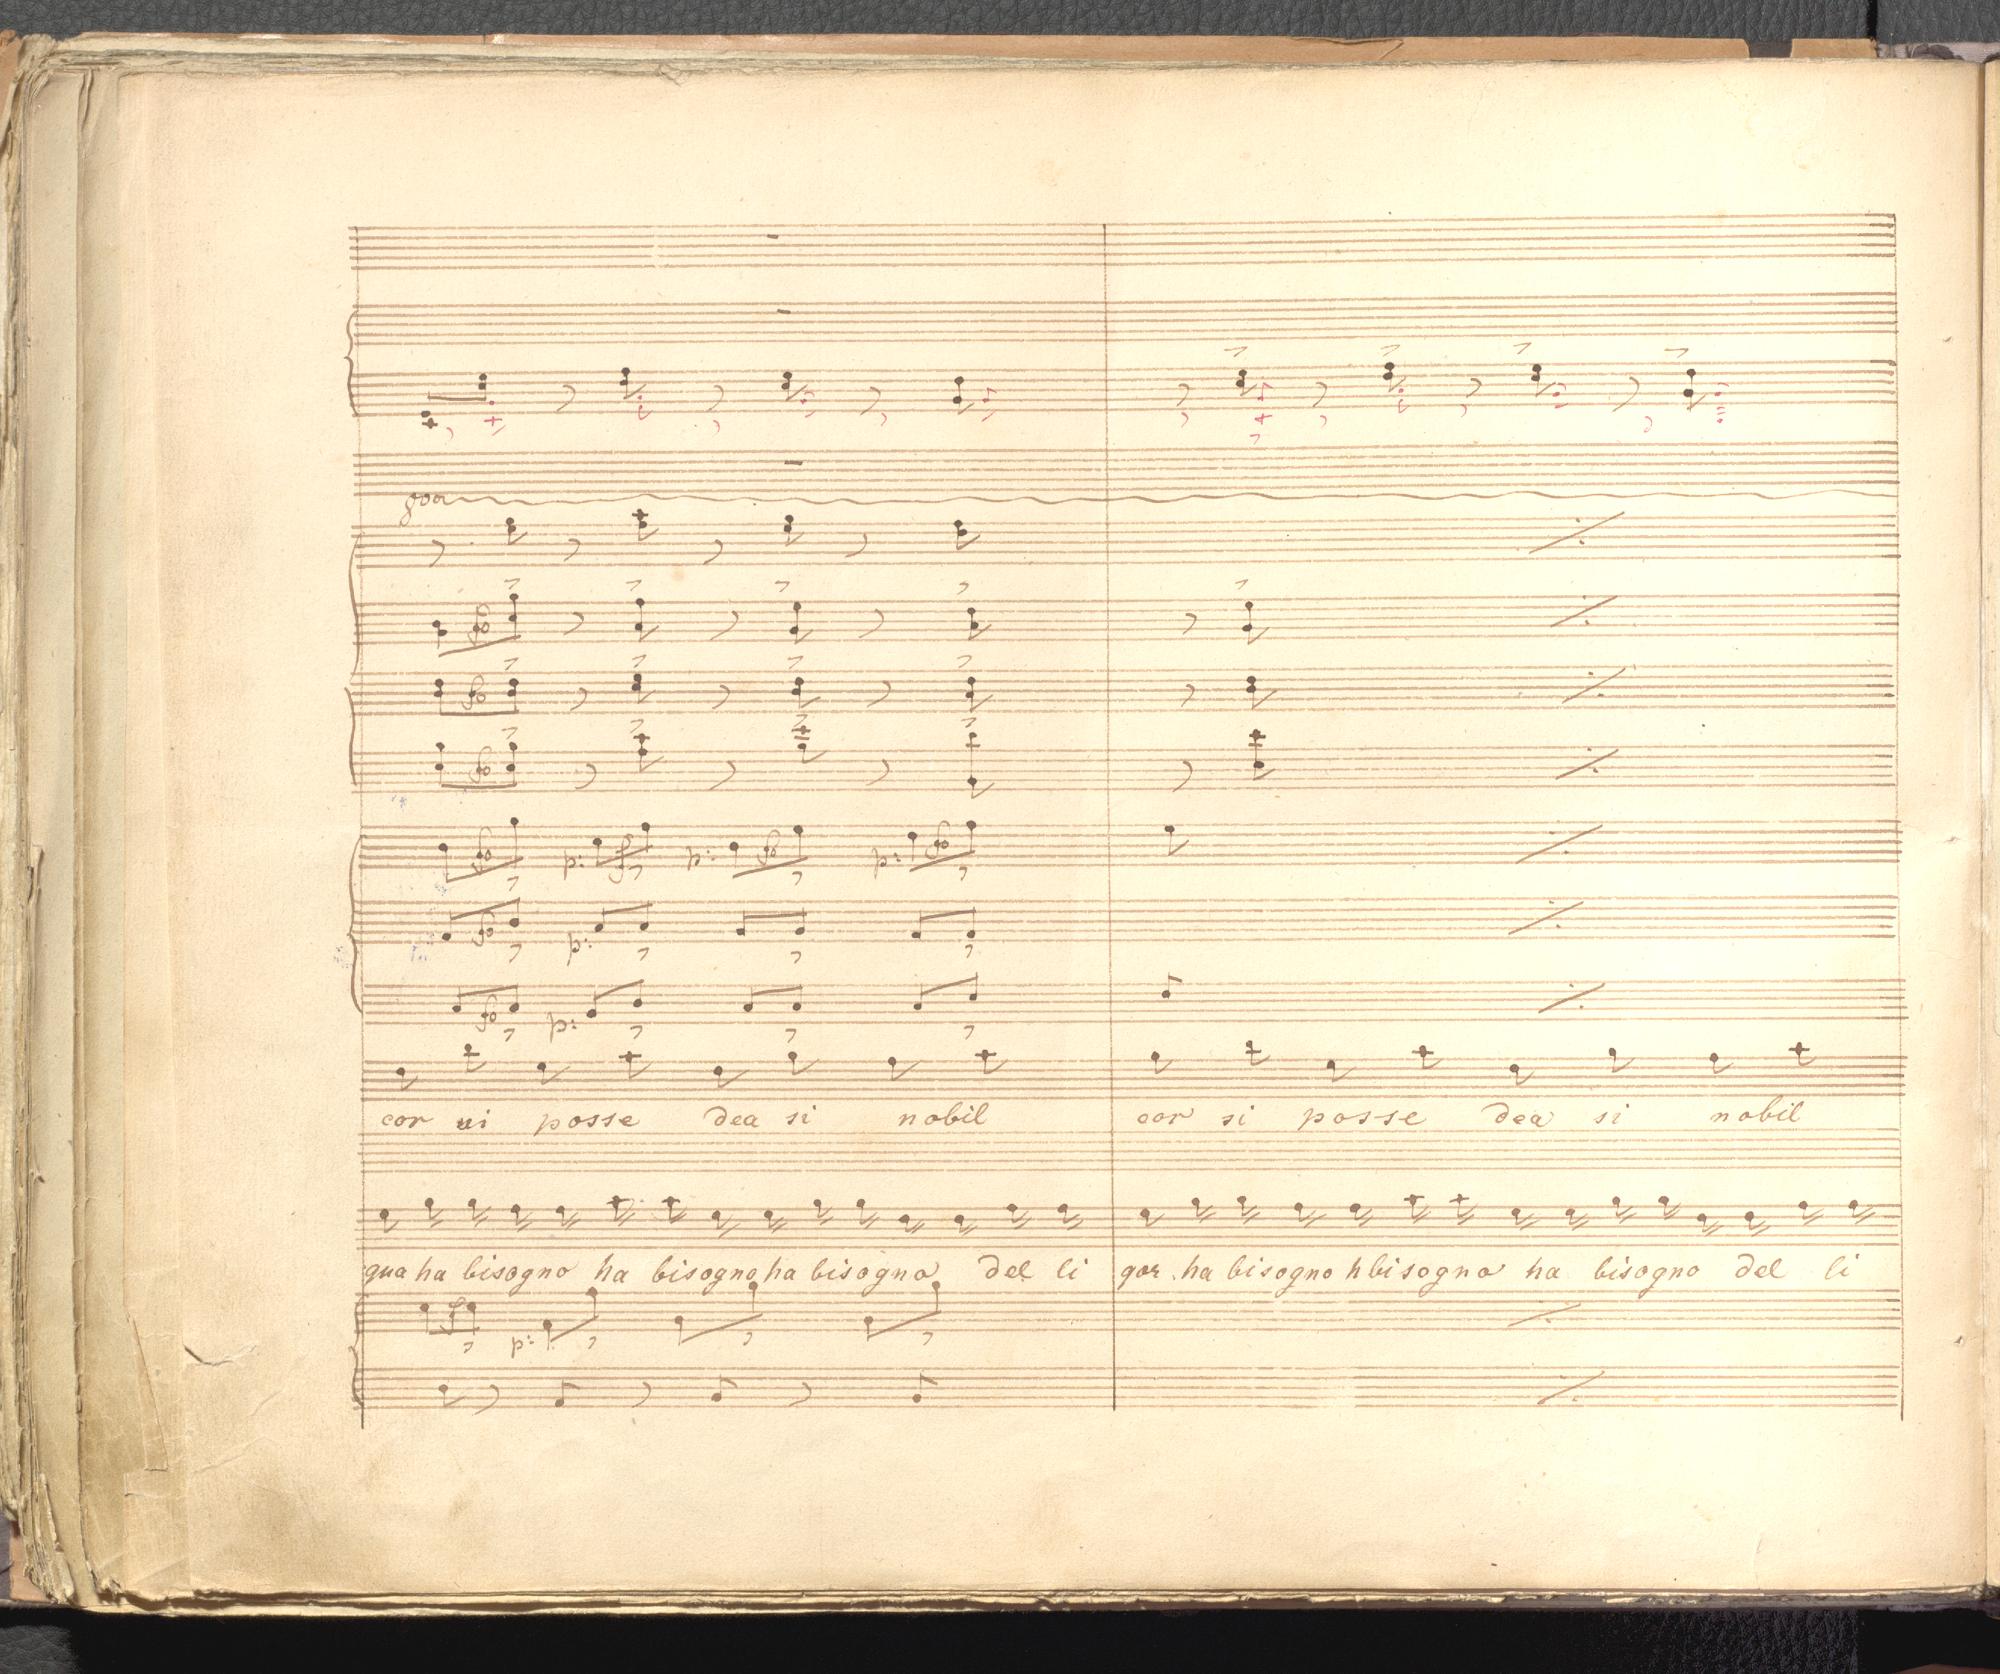 8va
fo fo fo
p: fo p: fo p: fo p: fo
fo p:
fo p:
cor ui posse dea si nobil cor si posse dea si nobil
gua ha bisogno ha bisogno ha bisogno del li gor ha bisogno h bisogno ha bisogno del li
p: